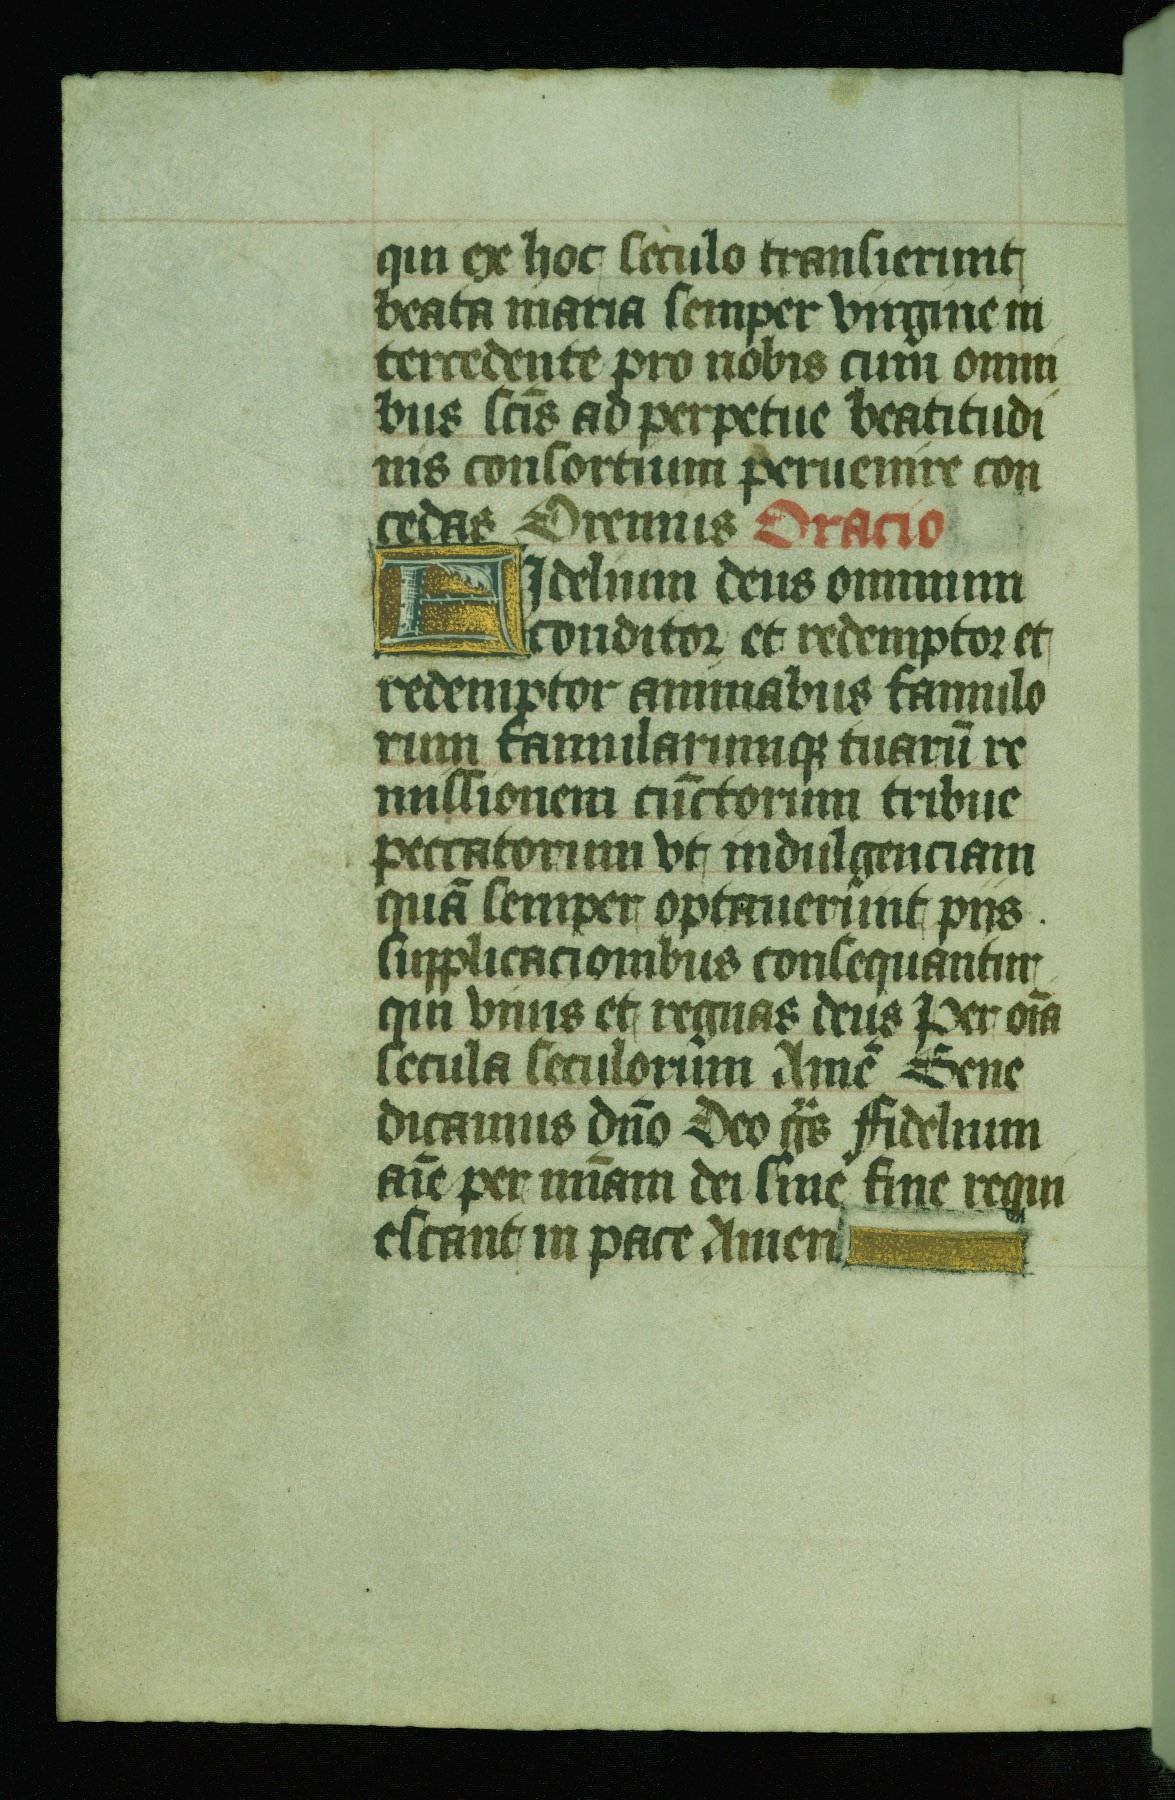 qui ex hoc seculo transierunt
beata maria semper virgine in
tercedente pro nobis cum omni
bus scīs ad perpetue beatitudi
nis consortium peruenire con
cedas Oremus Oracio
FIdelium deus omnium
conditor et redemptor et
redemptor animabus famulo
rum famularumqꝫ tuarū re
missionem cūctorum tribue
peccatorum vt indulgenciam
quā semper optauerunt piis .
supplicacionibus consequantur
qui viuis et regnas deus Per oīa
secula seculorum Amē Bene
dicamus dn̄o Deo gr̄s Fidelium
aīe per mīam dei sine fine requi
escant in pace Amen